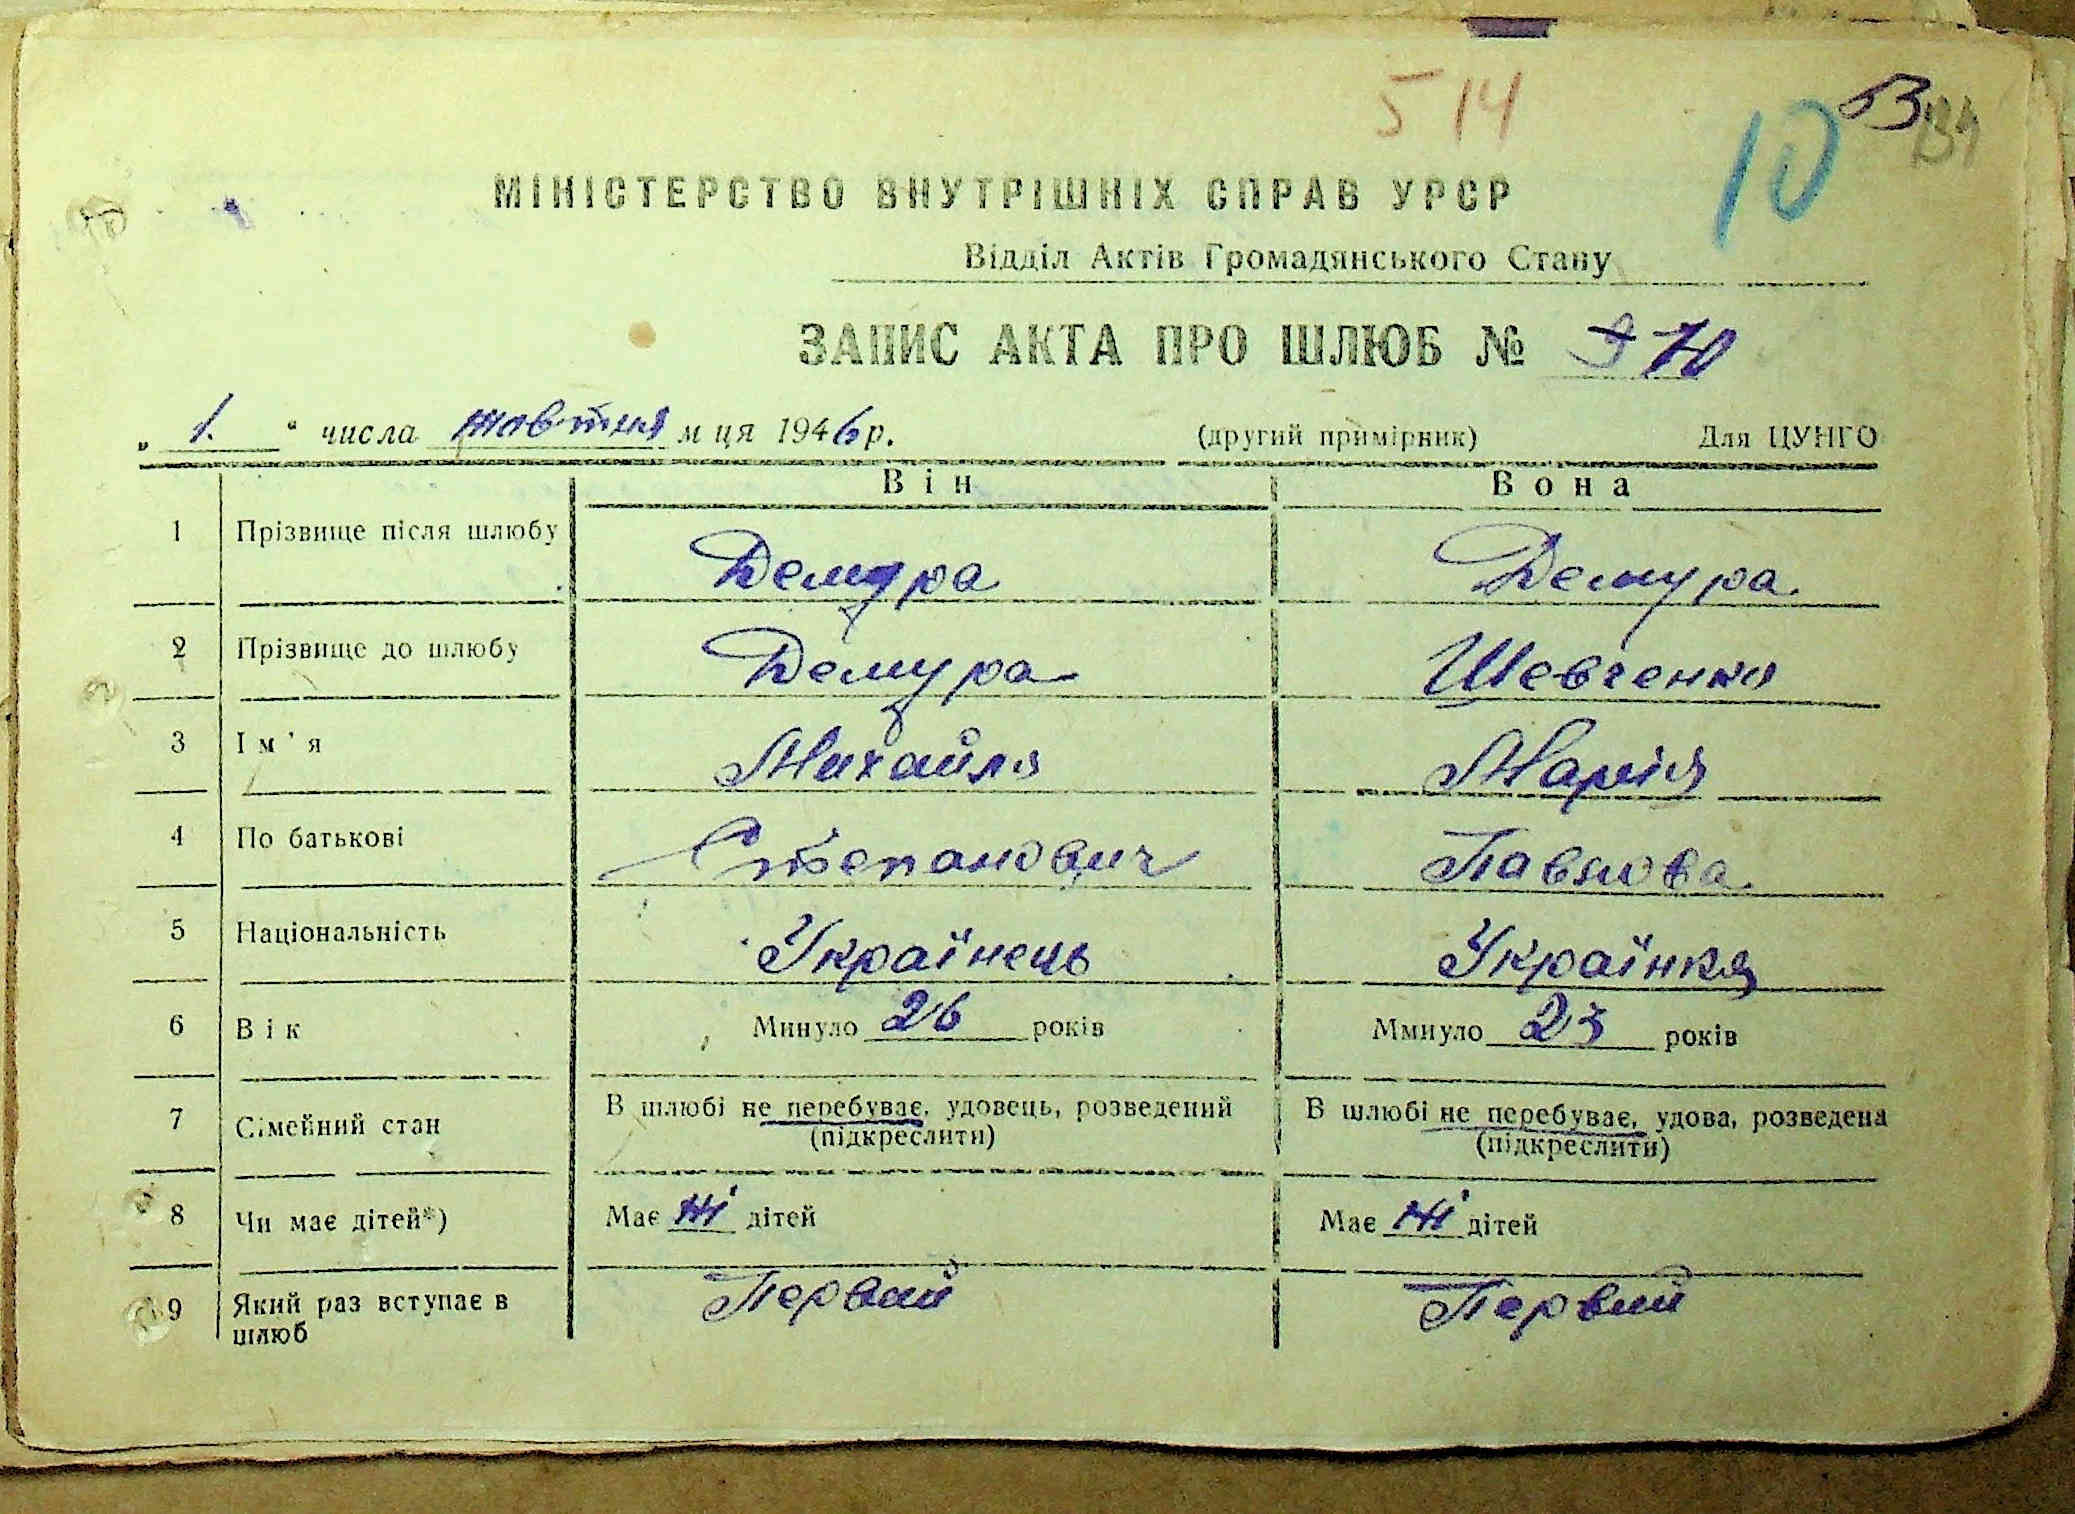 514
10
53
МІНІСТЕРСТВО ВНУТРІШНІХ СПРАВ УРСР
Відділ Актів Громадянського Стану
ЗАПИС АКТА ПРО ШЛЮБ №
„ 1. “ числа жовтня м ця 1946 р. (другий примірник) Для ЦУНГО
Він Вона
1 Прізвище після шлюбу Демура Демура
2 Прізвище до шлюбу Демура Шевченко
3 Ім'я Михайло Марія
4 По батькові Степанович Павлова
5 Національність Українець Українка
6 Вік Минуло 26 років Ммнуло 23 років
7 Сімейний стан В шлюбі не перебуває, удовець, розведений В шлюбі не перебуває, удова, розведена
(підкреслити) (підкреслити)
8 Чи має дітей*) Має ні дітей Має ні дітей
9 Який раз вступає в Первий Первий
шлюб